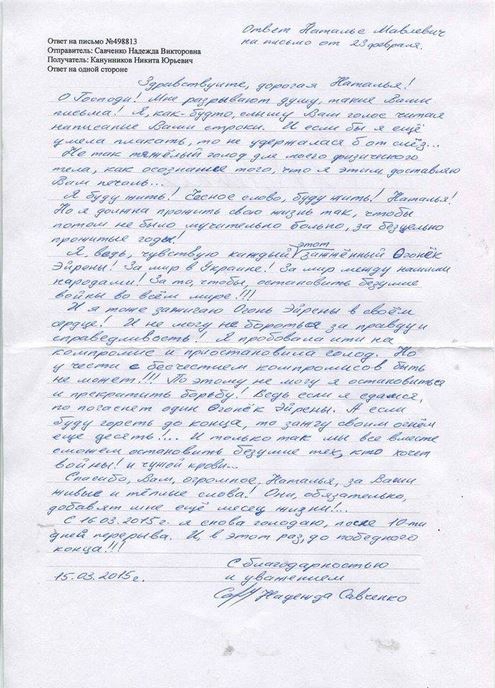 Ответ на письмо №498813
Отправитель: Савченко Надежда Викторовна
Получатель: Канунников Никита Юрьевич
Ответ на одной стороне
Ответ Наталье Мавлевич
на письмо от 23 февраля.
Здравствуйте, дорогая Наталья!
О Господи! Мне разрывают душу, такие Ваши
письма! Я, как-будто, слышу Ваш голос читая
написание Вами строки. И если бы я ещё
умела плакать, то не удержалася б от слёз...
Не так тяжёлый голод для моего физического
тела, как осознание того, что я этим доставляю
Вам печаль...
Я буду жить! Чесное слово, буду жить! Наталья!
Но я должна прожить свою жизнь так, чтобы
потом не было мучительно больно, за безцельно
прожитые годы!
Я, ведь, чувствую каждый этот зажжённый Огонёк
Эйрены! За мир в Украине! За мир между нашими
народами! За то, чтобы, остановить безумие
войны во всём мире!!!
И я тоже зажигаю Огонь Эйрены в своём
сердце! И не могу не бороться за правду и
справедливость! Я пробовала ити на
компромис и приостановила голод. Но
у чести с бесчестием компромисов быть
не может!!! По этому не могу я остановиться
и прекратить борьбу! Ведь если я сдамся,
то погаснет один Огонёк Эйрены. А если
буду гореть до конца, то зажгу своим огнём
ещё десять.... И только так мы все вместе
сможем остановить безумие тех, кто хочет
войны! и чужой крови...
Спасибо, Вам, огромное, Наталья, за Ваши
живые и тёплые слова! Они, обязательно,
добавят мне ещё месяц жизни!...
С 16.03.2015г. я снова голодаю, после 10-ти
дней перерыва. И, в этот раз, до победного
конца!!!
С благодарностью
и уважением
15.03.2015г.
Надежда Савченко